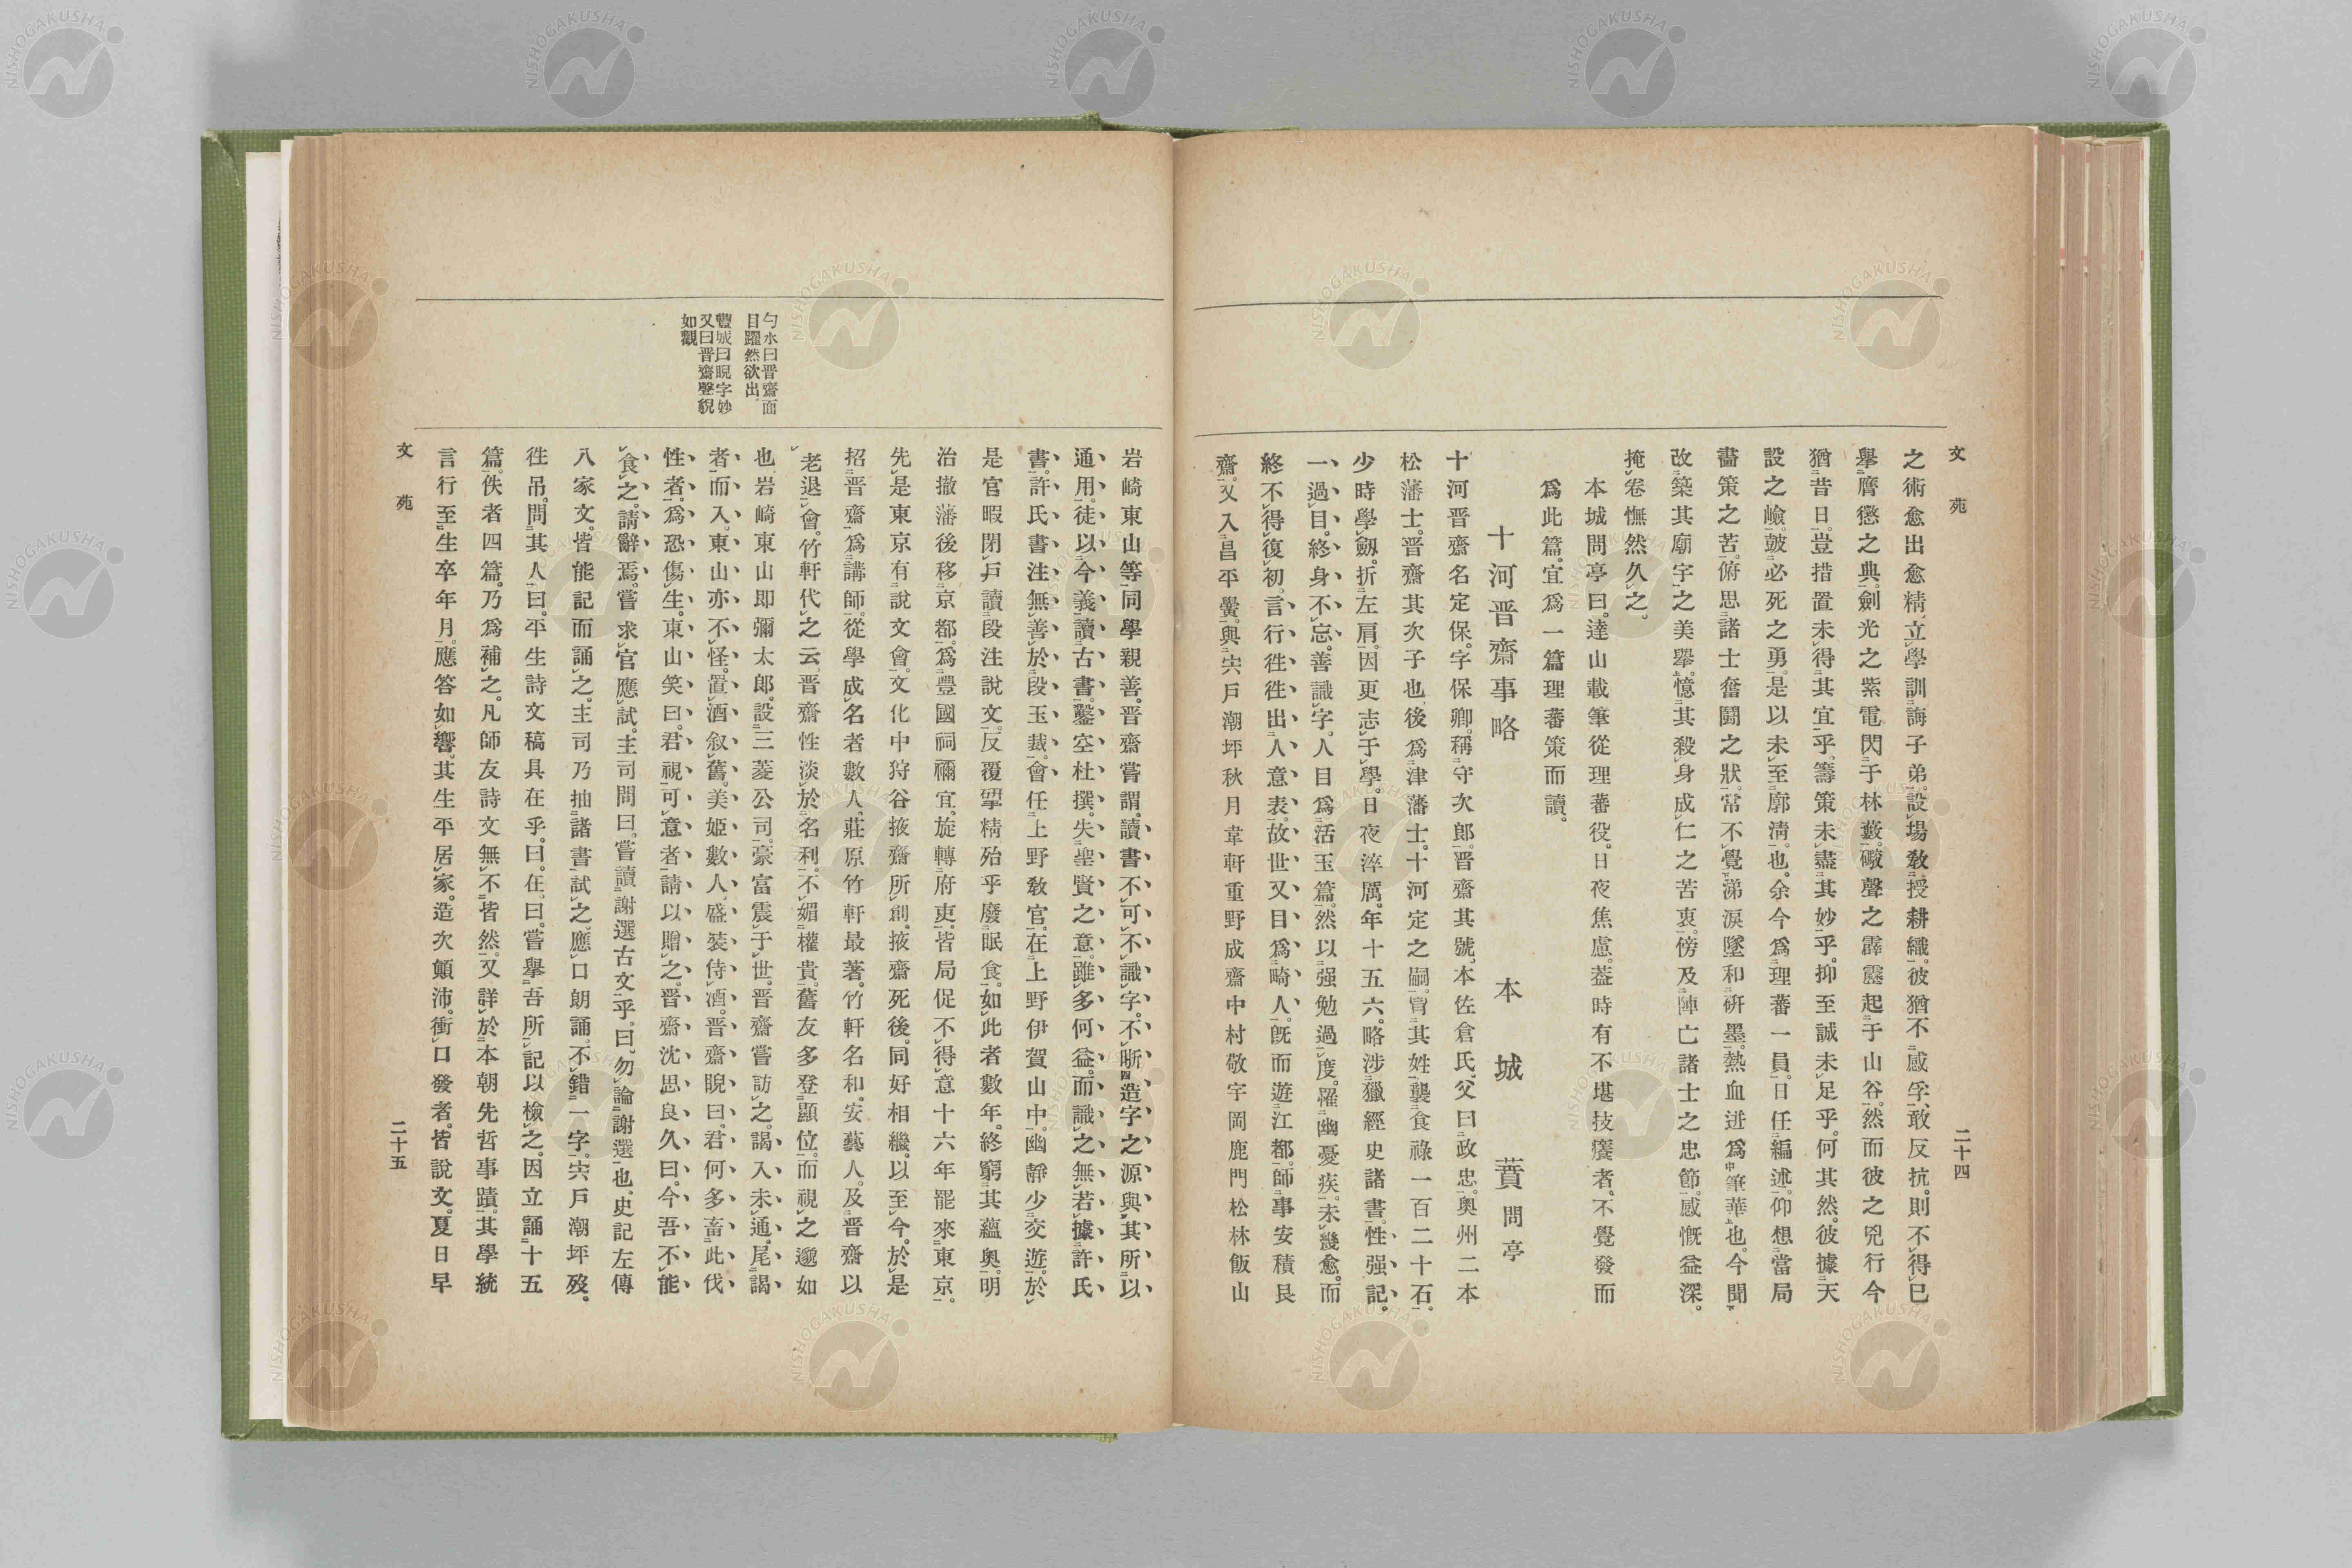 文苑
二十四
之術愈出愈精。立學訓誨子弟。設場敎授耕織。彼猶不感孚、敢反抗。則不得已
擧膺懲之典。劍光之紫電閃于林藪。礮聲之霹靂起于山谷。然而彼之兇行今
猶昔日。豈措置未得其宜乎。籌策未盡其妙乎。抑至誠未足乎。何其然。彼據天
設之嶮。皷必死之勇。是以未至廓淸也。余今爲理蕃一員。日任編述。仰想當局
畫策之苦。俯思諸士奮鬪之狀。常不覺涕淚墜和硏墨。熱血迸爲筆華也。今聞
改築其廟宇之美擧。憶其殺身成仁之苦衷。傍及陣亡諸士之忠節。感慨益深。
掩卷憮然久之。
本城問亭曰。達山載筆從理蕃役。日夜焦慮。葢時有不堪技癢者。不覺發而
爲此篇。宜爲一篇理蕃策而讀。
十河晋齋事略
本城蕡問亭
十河晋齋名定保。字保卿。稱守次郎。晋齋其號。本佐倉氏。父曰政忠。奥州二本
松藩士。晋齋其次子也後爲津藩士。十河定之嗣。冐其姓。襲食祿一百二十石。
少時學劔。折左肩。因更志于學。日夜淬厲。年十五六。略涉獵經史諸書。性强記。
一過目。終身不忘。善識字。人目爲活玉篇。然以强勉過度。罹幽憂疾。未幾愈。而
終不得復初。言行往往出人意表。故世又目爲畸人。旣而遊江都。師事安積艮
齋。又入昌平黌。與宍戶潮坪秋月韋軒重野成齋中村敬宇岡鹿門松林飯山
岩崎東山等同學親善。晋齋嘗謂。讀書不可不識字。不晰造字之源與其所以
通用。徒以今義讀古書。鑿空杜撰。失聖賢之意。雖多何益。而識之無若據許氏
書。許氏書注無善於段玉裁。會任上野敎官。在上野伊賀山中。幽靜少交遊。於
是官暇閉戸讀段注說文。反覆硏精殆乎廢眠食。如此者數年。終窮其蘊奥。明
治撤藩後移京都。爲豐國祠禰宜。旋轉府吏。皆局促不得意十六年罷來東京。
先是東京有說文會。文化中狩谷掖齋所創。掖齋死後。同好相繼。以至今。於是
招晋齋爲講師。從學成名者數人。莊原竹軒最著。竹軒名和。安藝人。及晋齋以
老退會。竹軒代之云。晋齋性淡於名利。不媚權貴。舊友多登顯位。而視之邈如
也。岩崎東山即彌太郎。設三菱公司。豪富震于世。晋齋嘗訪之。謁入未通。尾謁
者而入。東山亦不怪。置酒叙舊。美姬數人。盛裝侍酒。晋齋睨曰。君何多畜此伐
性者。爲恐傷生。東山笑曰。君視可意者。請以贈之。晋齋沈思良久曰。今吾不能
食之。請辭焉。嘗求官應試。主司問曰。嘗讀謝選古文乎。曰。勿論謝選也。史記左傳
八家文。皆能記而誦之。主司乃抽諸書試之。應口朗誦。不錯一字。宍戶潮坪歿。
徃吊。問其人曰。平生詩文稿具在乎。曰。在。曰。嘗擧吾所記以檢之。因立誦十五
篇。佚者四篇。乃爲補之。凡師友詩文無不皆然。又詳於本朝先哲事蹟。其學統
言行至生卒年月。應答如響。其生平居家。造次顚沛。衝口發者。皆說文。夏日早
勺水曰晋齋面
目躍然欲出。
豐城曰睨字妙
又曰晋齋聲貌
如觀
文苑
二十五
NISHOGAKUSHA